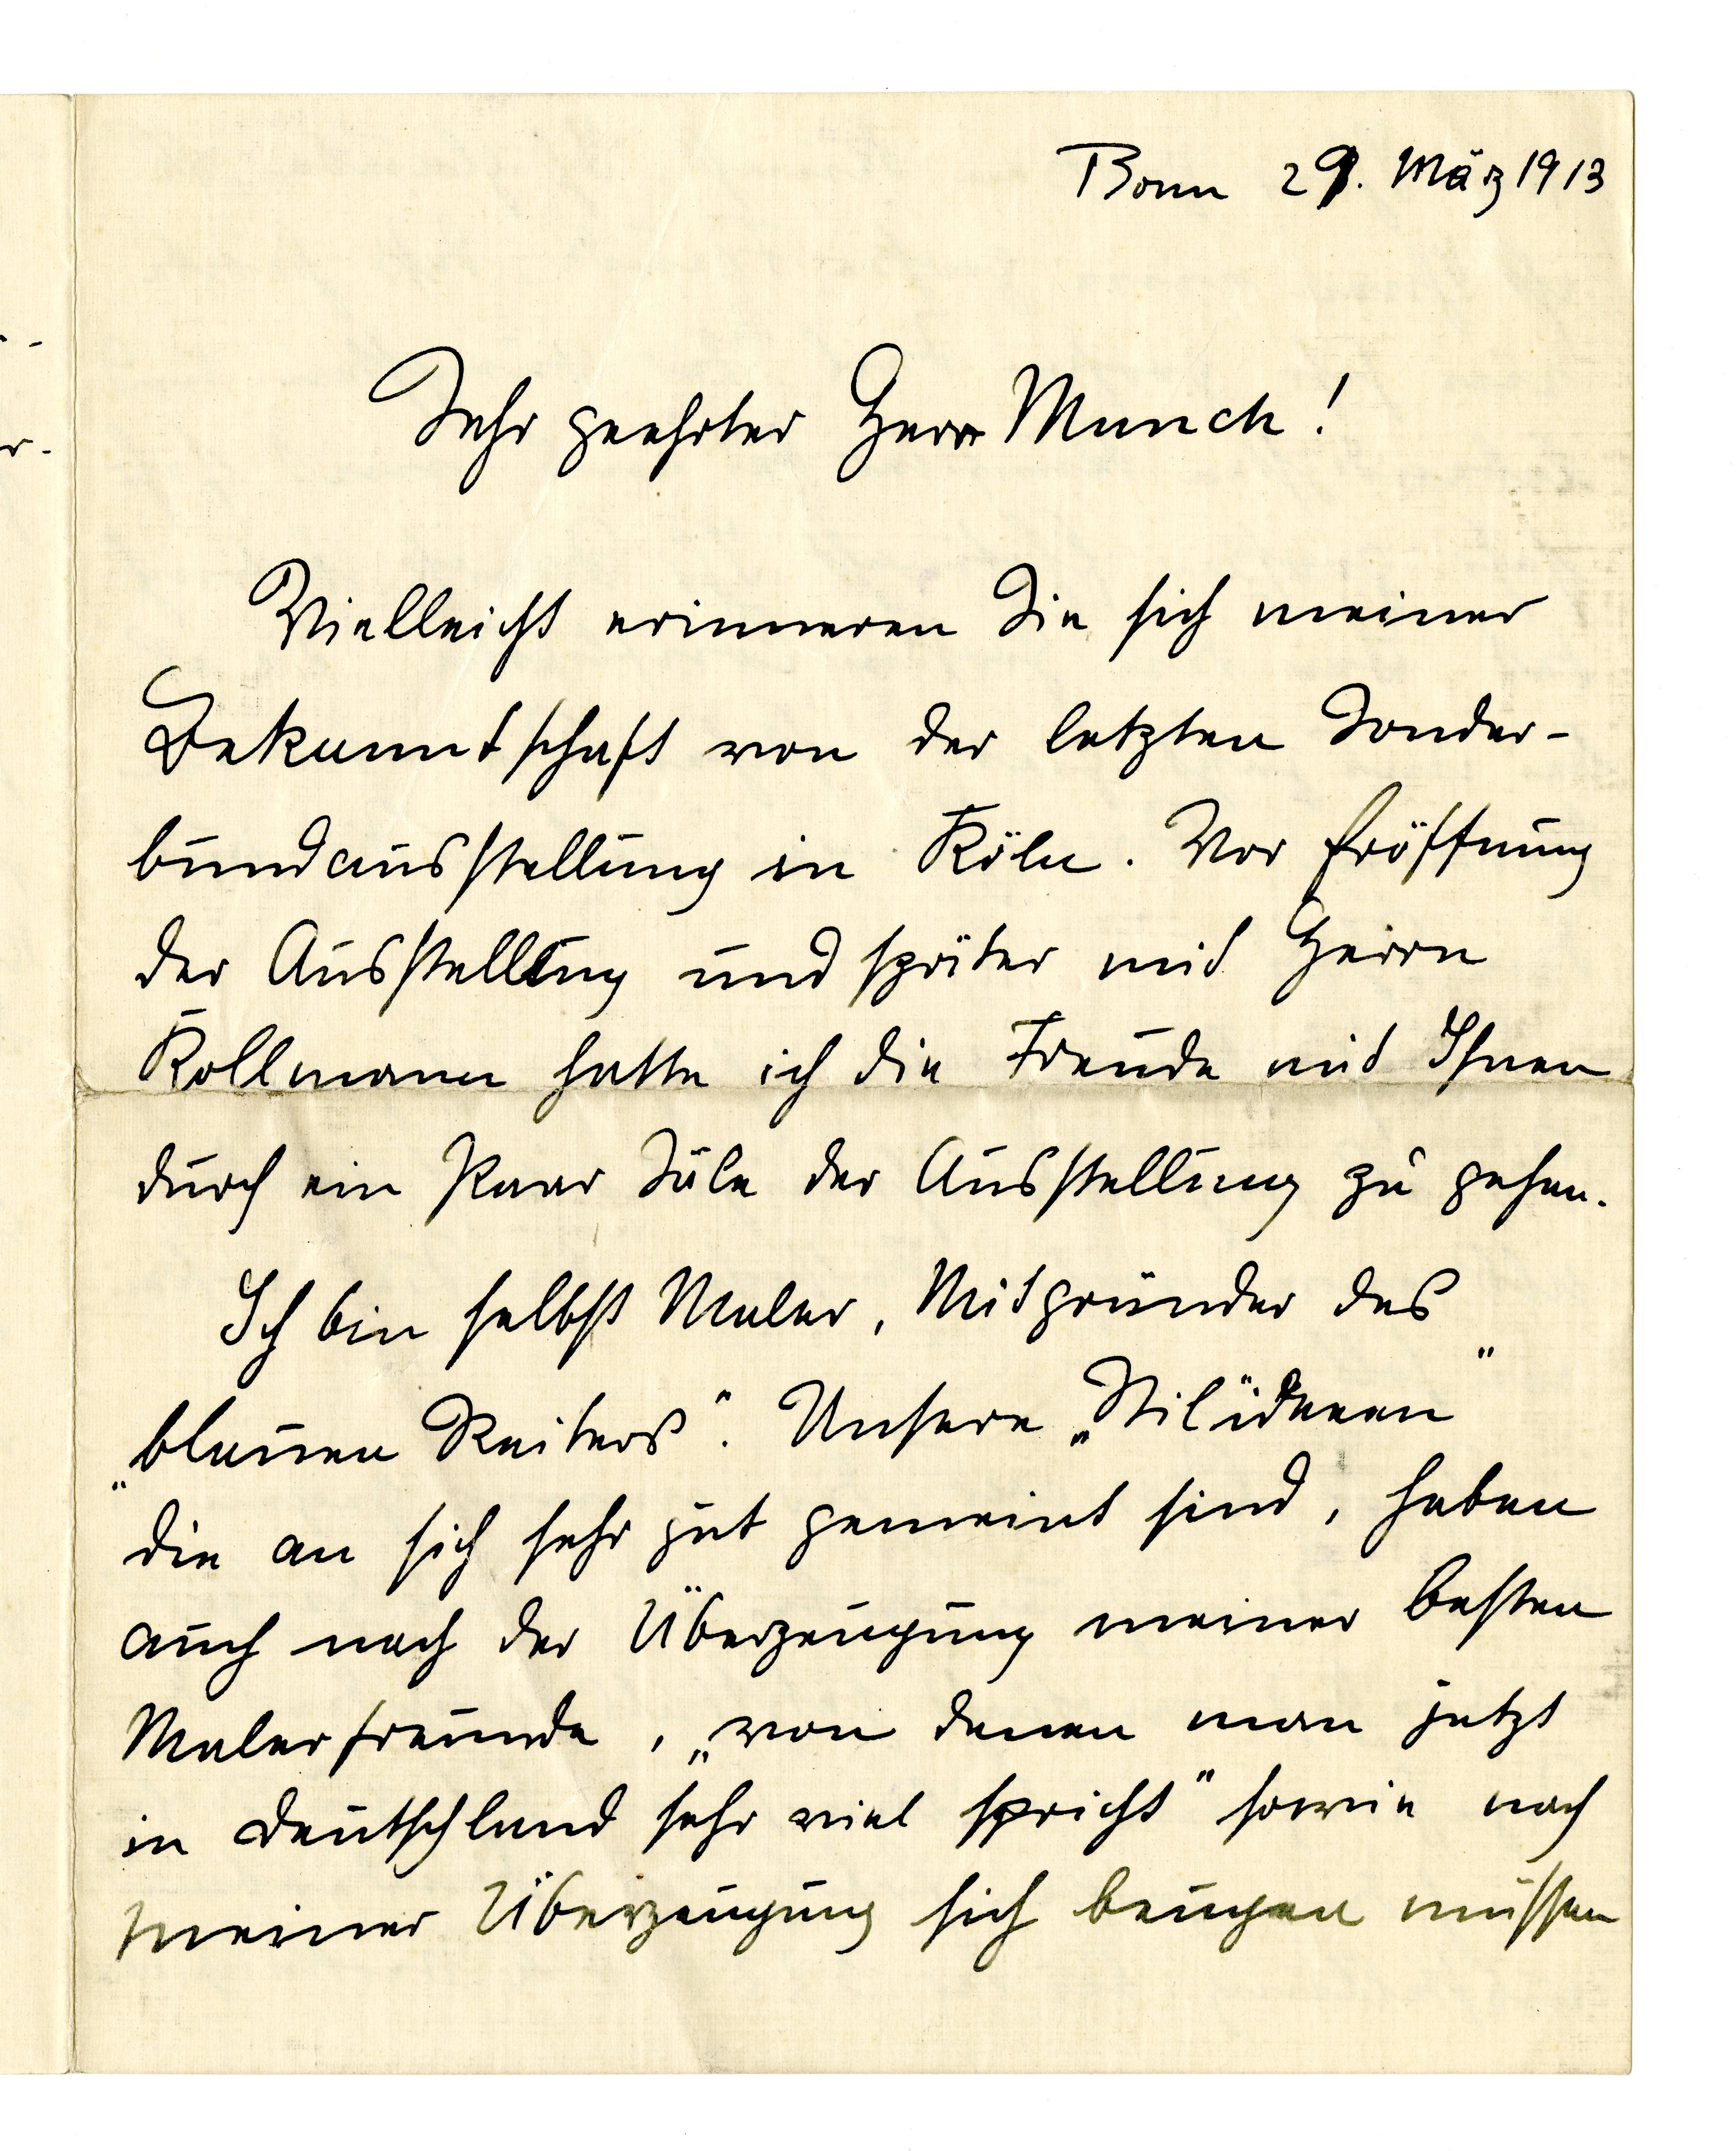 Bonn 29. März 1913
Sehr geehrter Herr Munch!
Vielleicht erinneren Sie sich meiner
Bekanntschaft von der letzten Sonder-
bundausstellung in Köln. Vor Eröffnung
der Ausstellung und später mit Herrn
Kollmann hatte ich die Freude mit Ihnen
durch ein Paar Säle der Ausstellung zu gehen.
Ich bin selbst Maler, Mitgründer des
„blauen Reiters". Unsere „Stilideeen"
die an sich sehr gut gemeint sind, haben
auch nach der Überzeugung meiner besten
Malerfreunde, „von denen man jetzt
in Deutschland sehr viel spricht" sowie nach
meiner Überzeugung sich beugen müssen